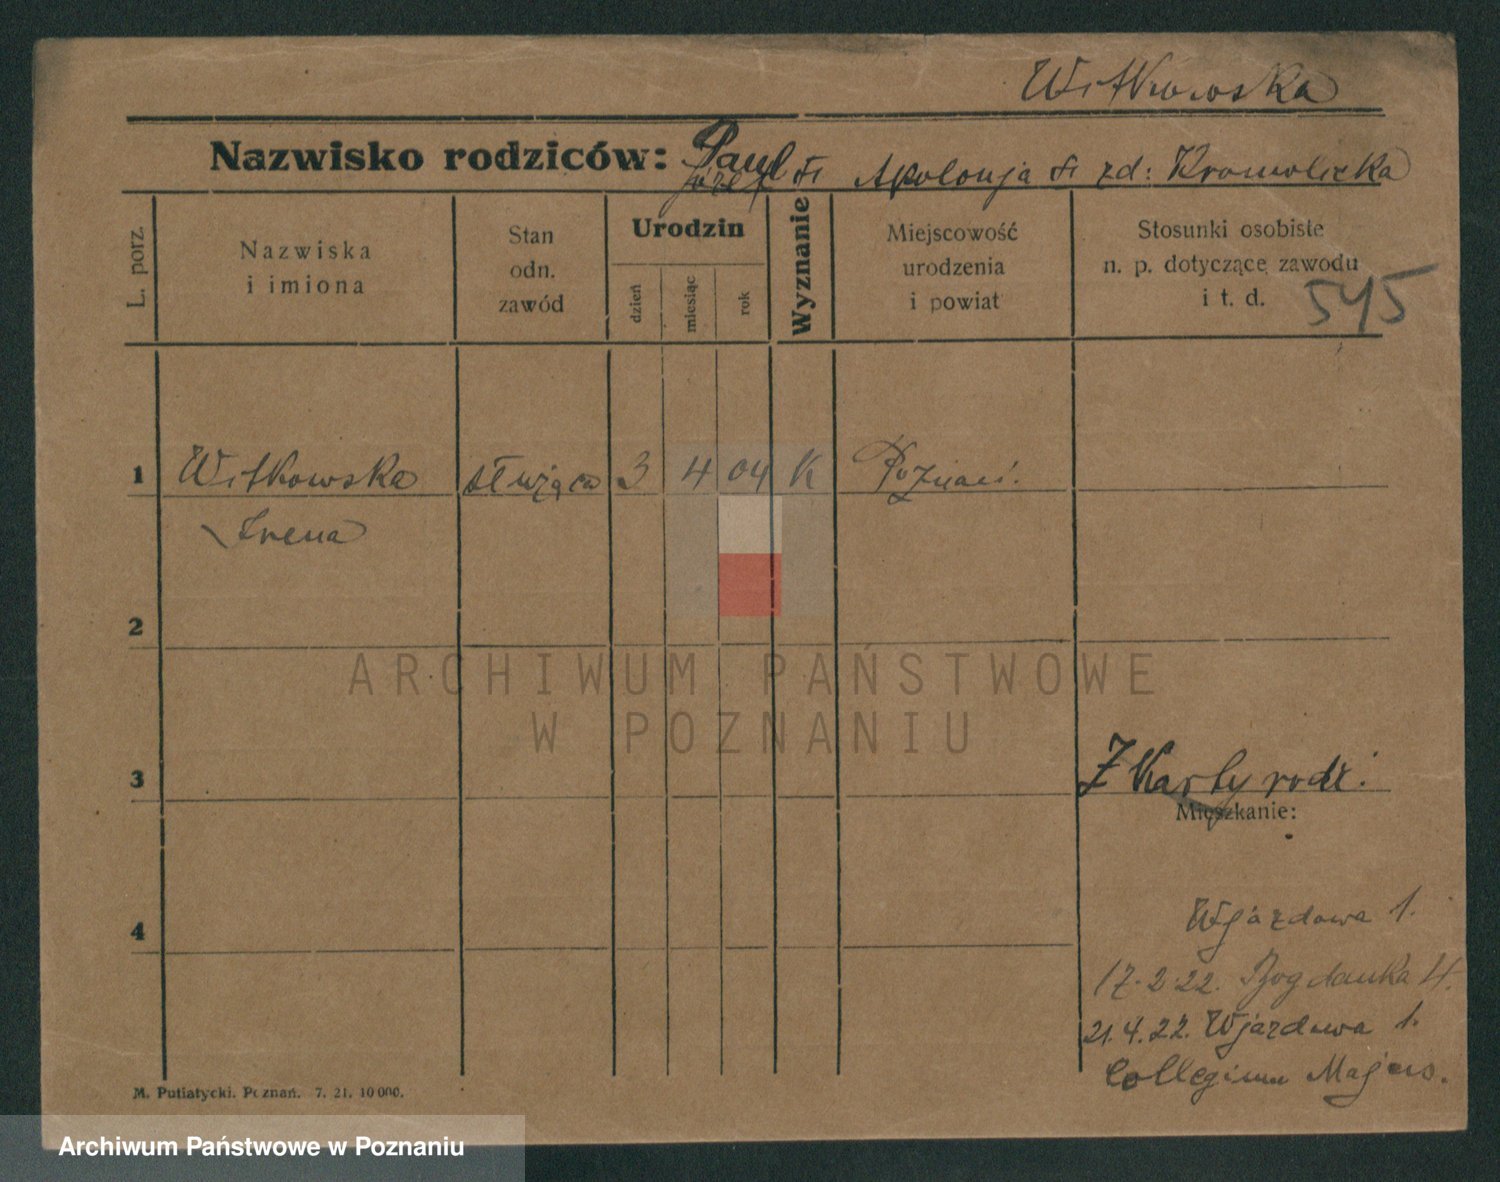 Witkowska
Nazwisko rodziców: Paul Józef † Apolonja † zd: Kromolicka
L. porz.
Nazwiska
i imiona
Stan
odn.
zawód
Urodzin
dzień
miesiąc
rok
Wyznanie
Miejscowość
urodzenia
i powiat
Stosunki osobiste
n. p. dotyczące zawodu
i t. d.
545
1 Witkowska służąca 3 4 04 K Poznań.
Irena
2
3
Z Karty rodz.
Mieszkanie:
4
Wjazdowa 1.
17.2.22. Bogdanka 4.
21.4.22. Wjazdowa 1.
Collegium Majus.
M. Putiatycki. Poznań. 7. 21. 10000.
ARCHIWUM PAŃSTWOWE
W POZNANIU
Archiwum Państwowe w Poznaniu